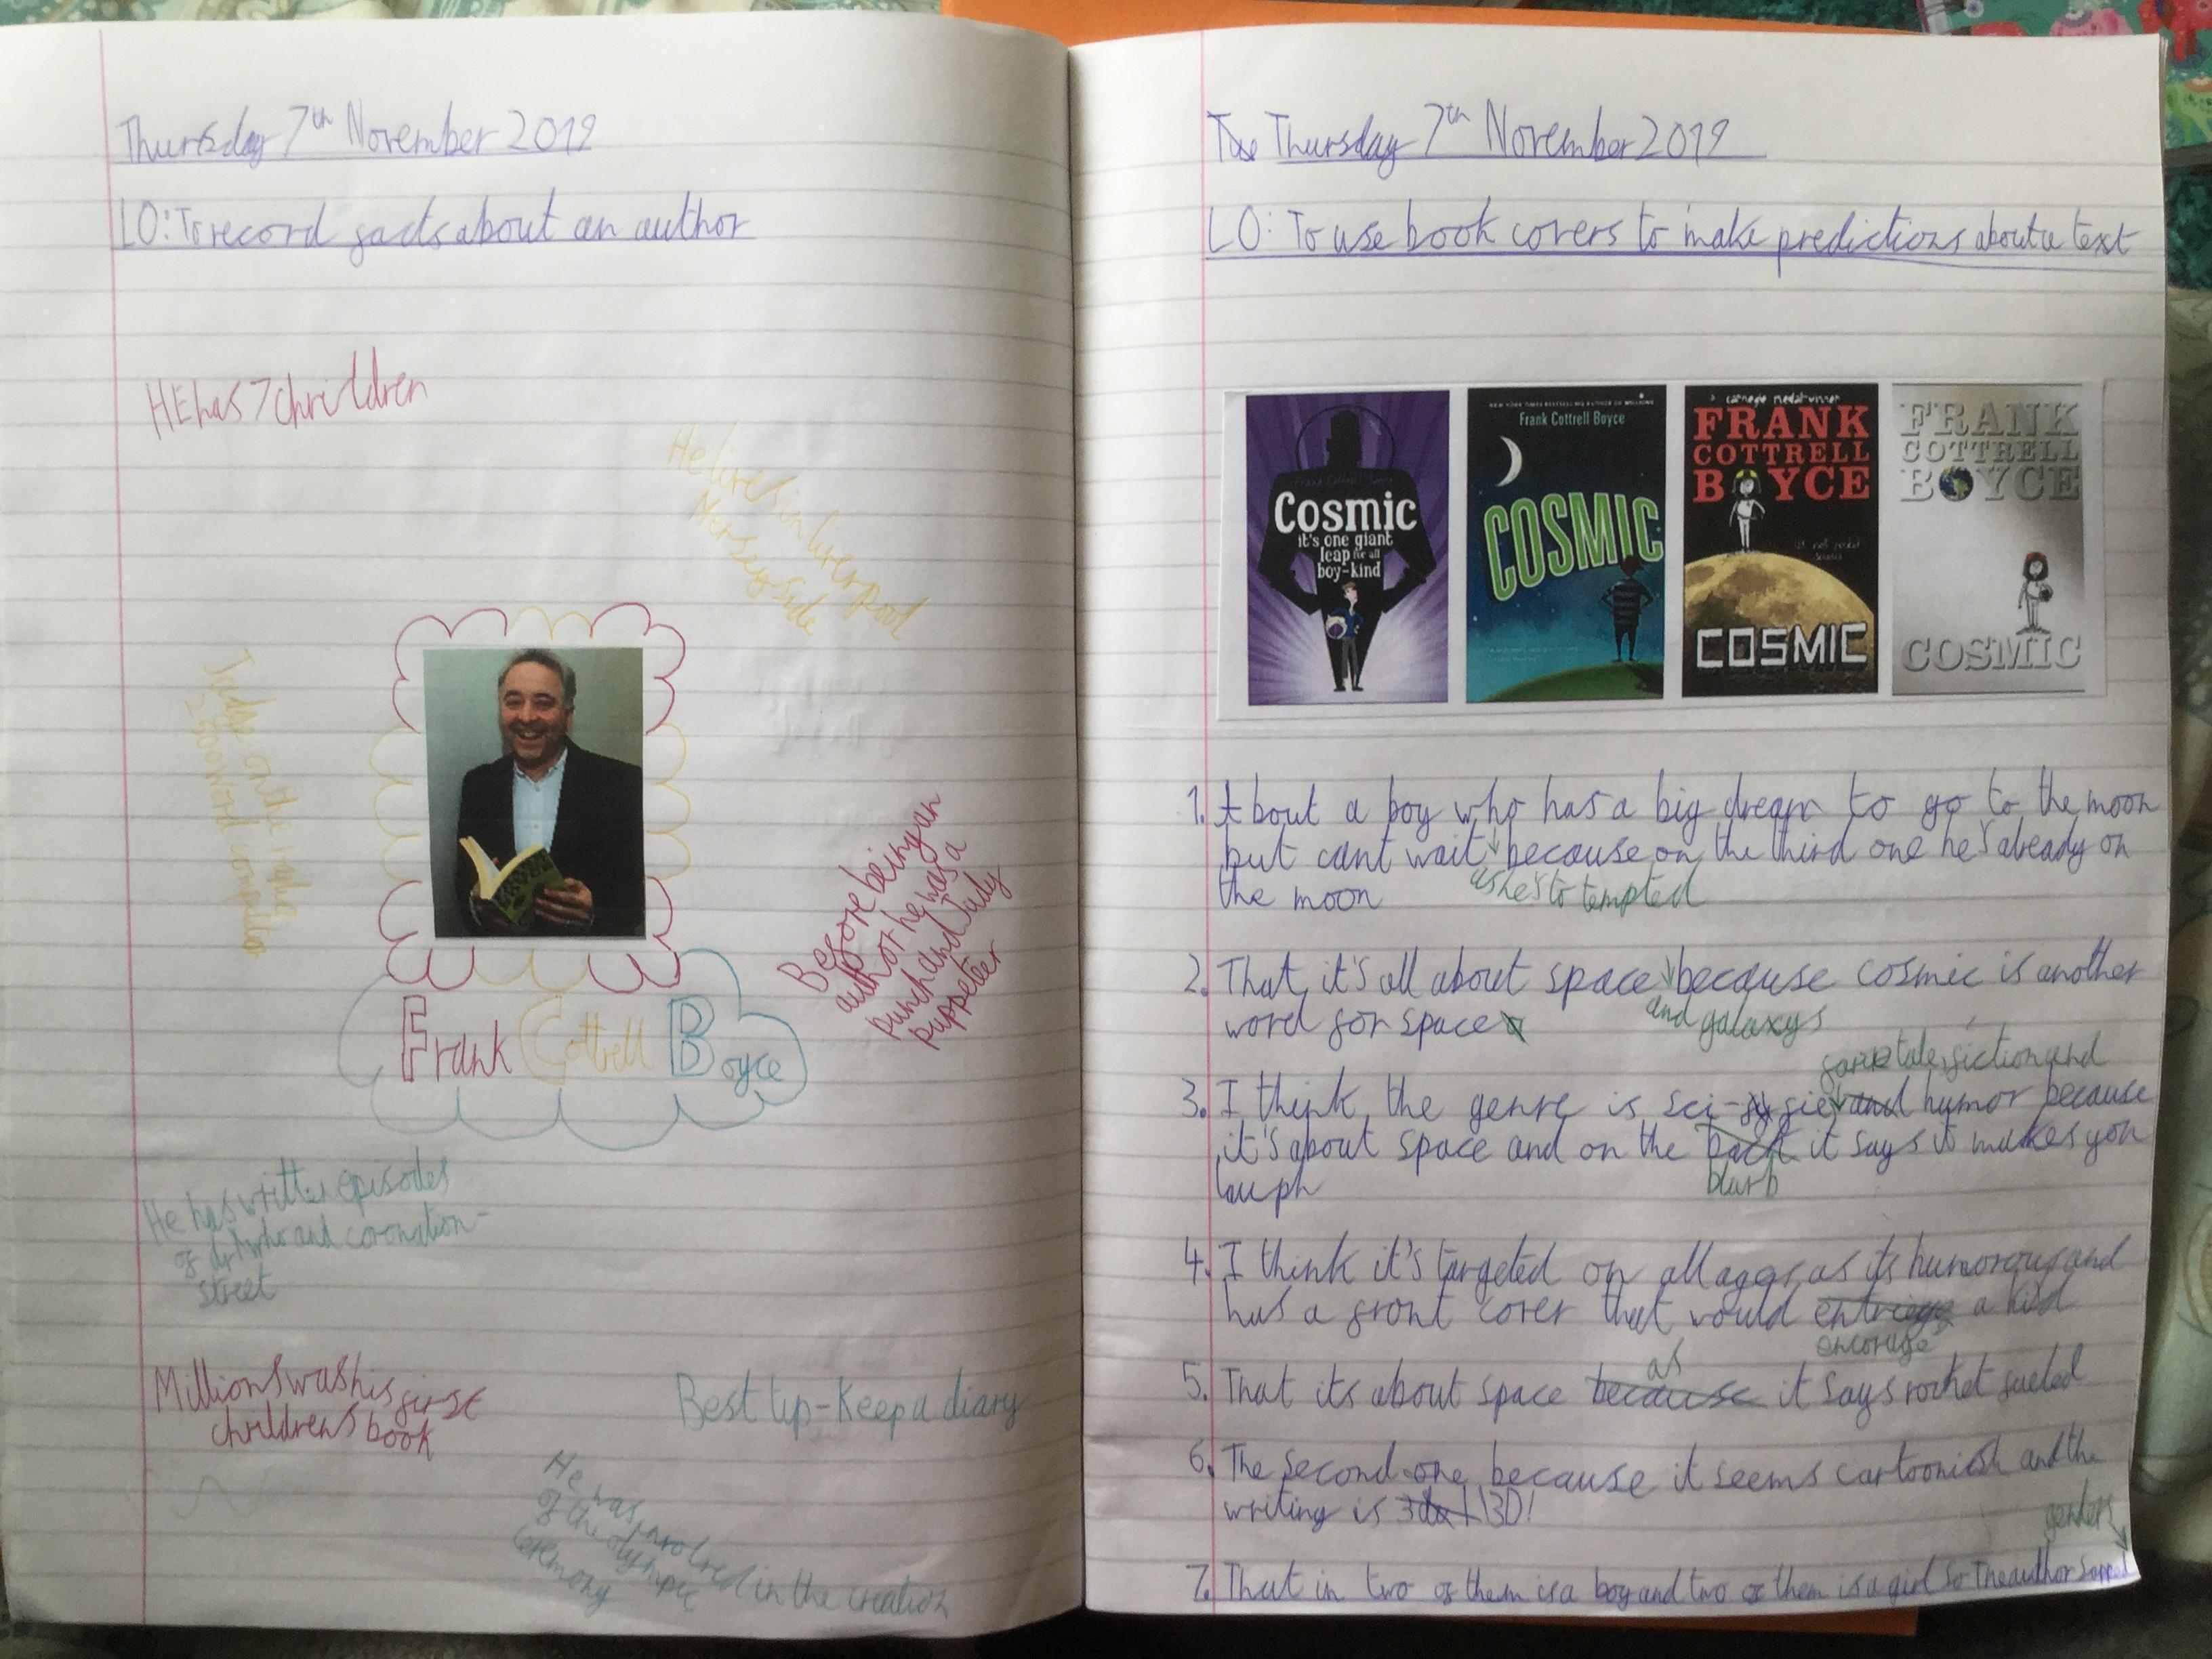 Thursday 7th November 2019
LO: To record facts about an author
HE has 7 chrildren
He lives in liverpool
Merseyside
Judge on the radio
2 500 word compition
Before being an
author he was a
punch and Judy
puppeteer
Frank Cottrell Boyce
He has written episodes
of dr who and coronation-
street
Millions was his first
chrildrens book
Best tip-Keep a diary
He was involved in the creation
of the olympic
ceremony
Tue Thursday 7th November 2019
LO: To use book covers to make predictions about a text
Frank Cottrell Boyce
Cosmic
it's one giant
leap for all
boy-kind
NEW YORK TIMES BESTSELLING AUTHOR OF MILLIONS
Frank Cottrell Boyce
COSMIC
a carnegie medal winner
FRANK
COTTRELL
BOYCE
COSMIC
FRANK
COTTRELL
BOYCE
COSMIC
1. About a boy who has a big dream to go to the moon
but cant wait because on the third one he's already on
as he's to tempted
the moon
2. That it's all about space because cosmic is another
and galaxys
word for space
tale, fiction and
3. I think the genre is sci-fy fie and humor because
it's about space and on the back it says it makes you
blurb
laugh
4. I think it's targeted on all ages as its humorous and
has a front cover that would a kid
encorage
as
5. That its about space because it says rocket fueled
6. The second one because it seems cartoonish and the
writing is 3D!
genders
7. That in two of them is a boy and two of them is a girl so The author